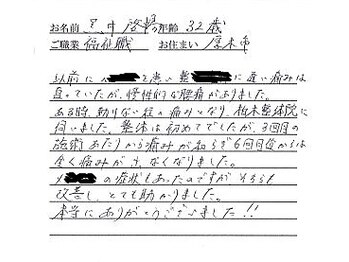 お名前 年齢 32歳
ご職業 福祉職 お住まい 厚木市
以前に と患い整 に近い痛みは
直っていたが、慢性的な腰痛がありました。
ある時、動けない程の痛みとなり、柏木整体院に
伺いました。整体は初めてでしたが、3回目の
施術あたりから痛みが和らぎ6回目位からは
全く痛みが なくなりました。
の症状もあったのですがそちらも
改善し、とても助かりました。
本当にありがとうございました!!